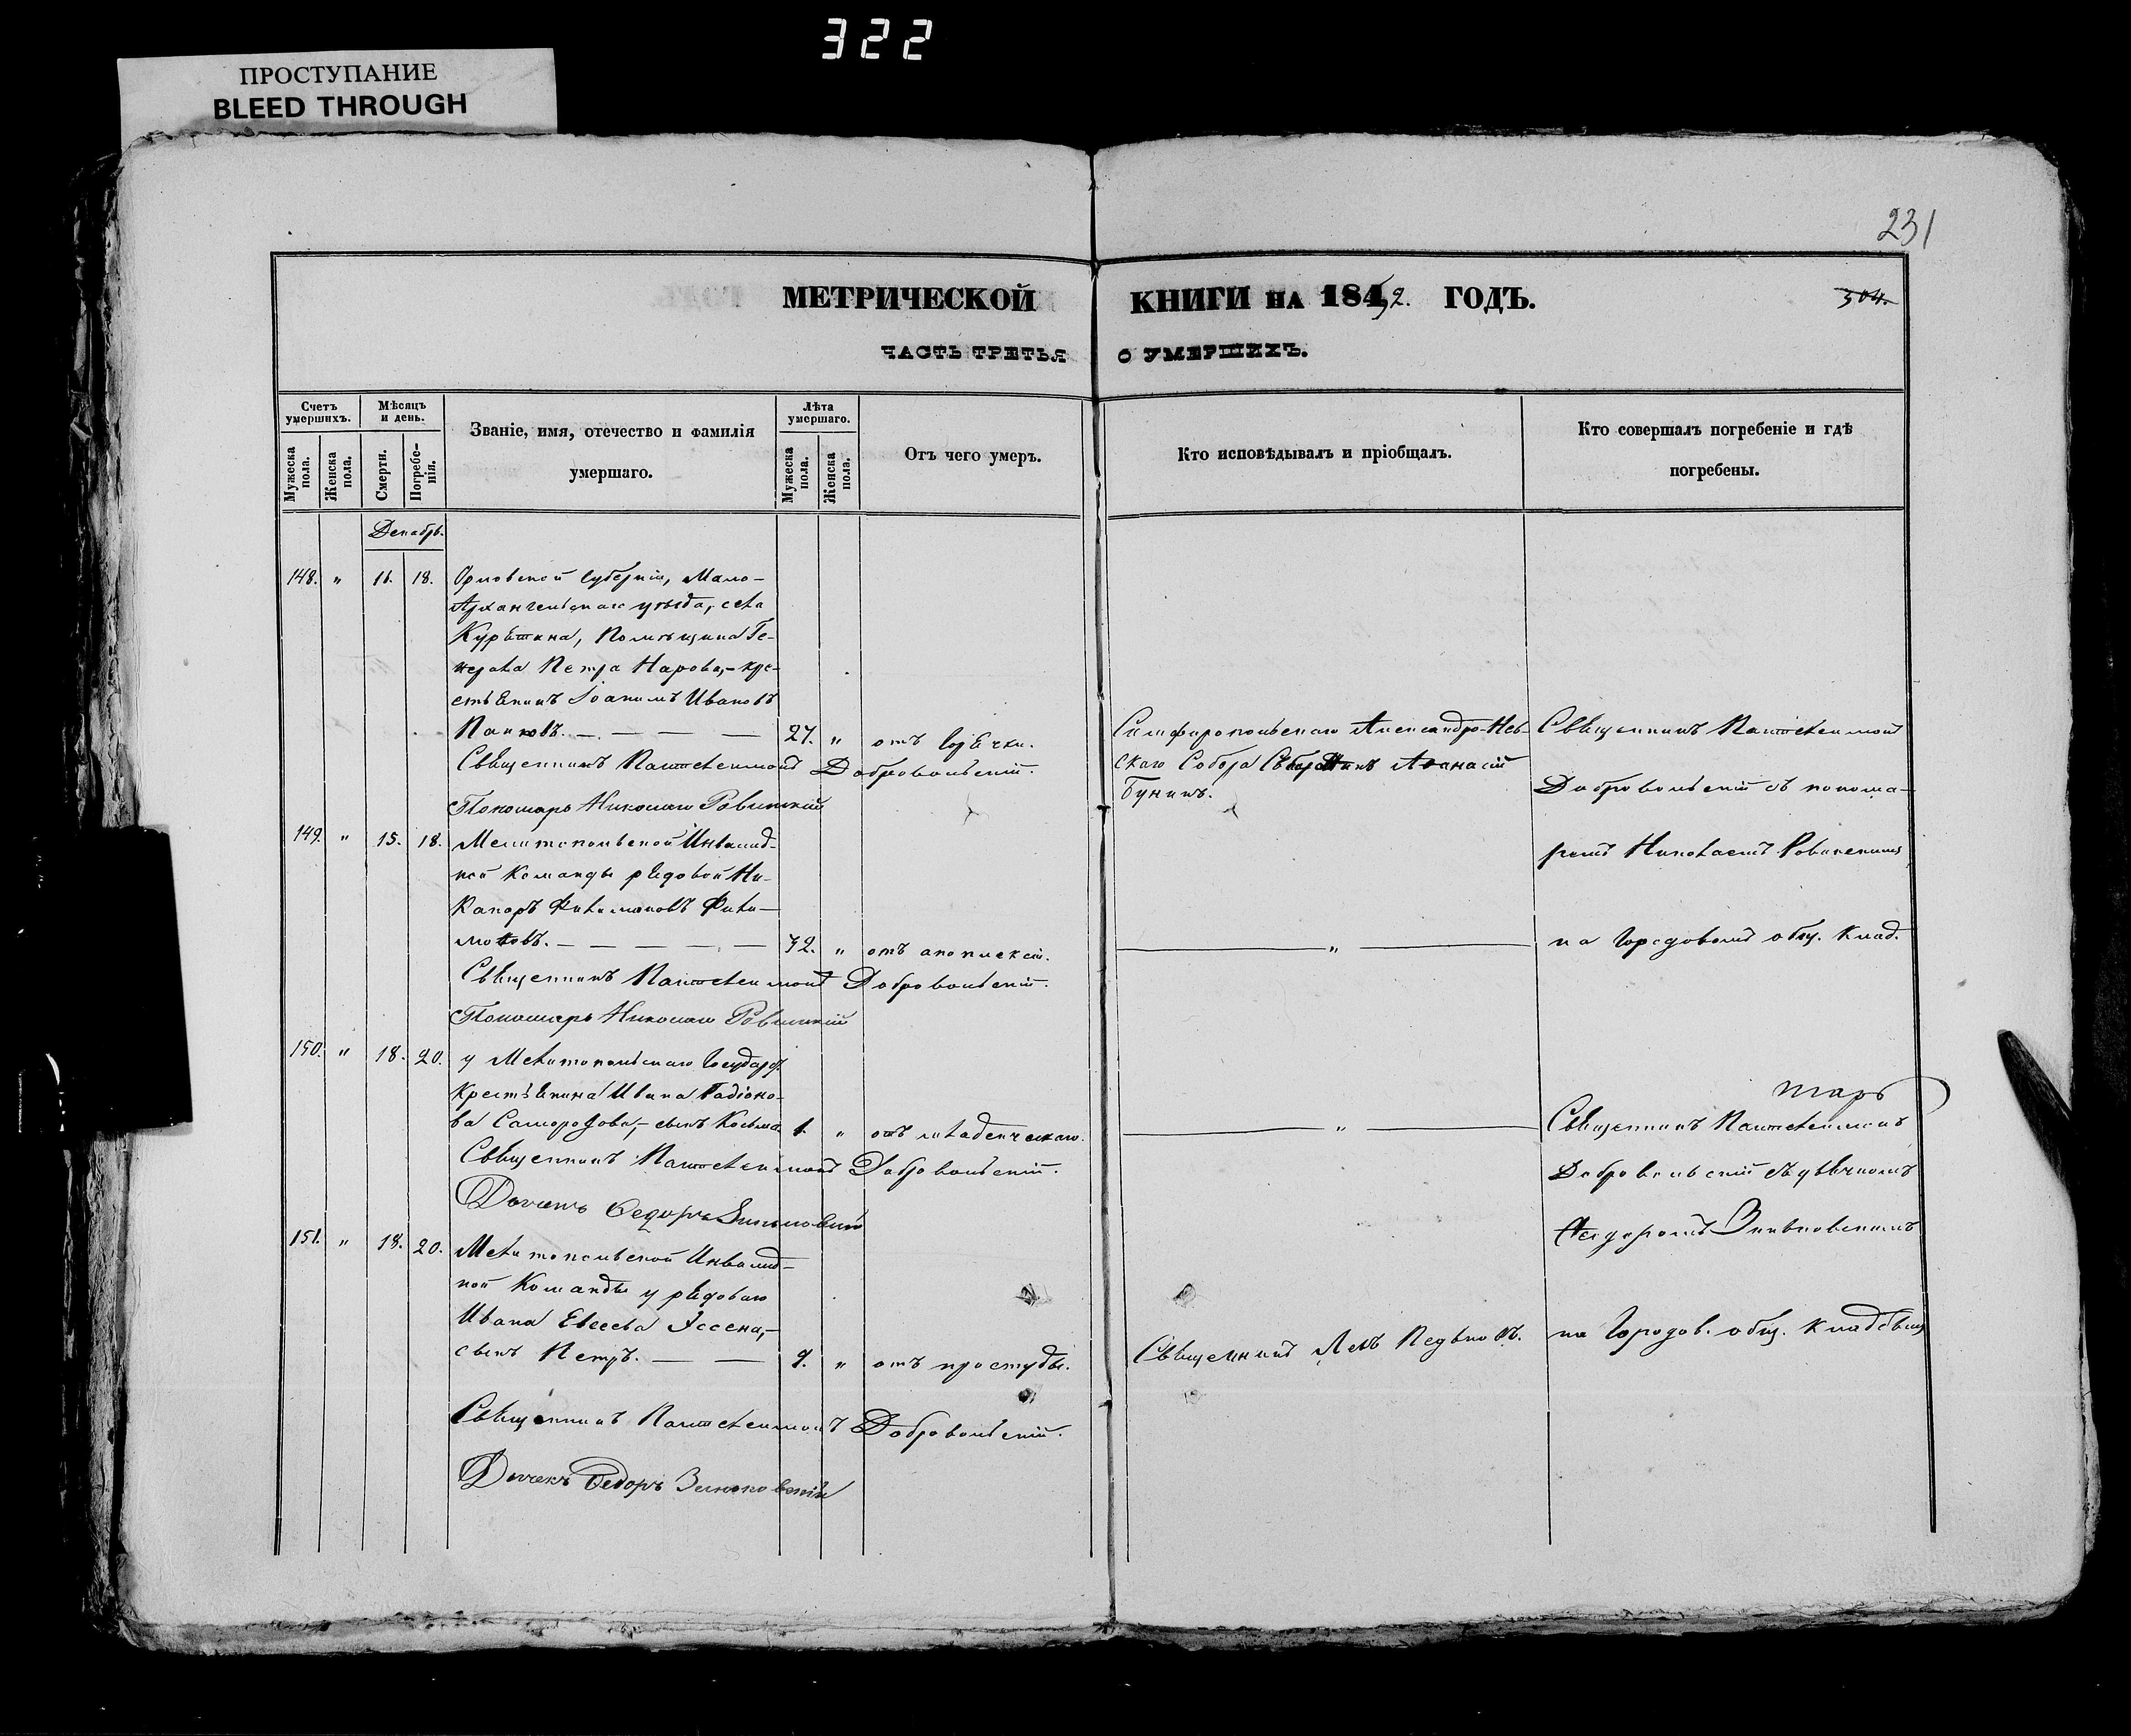 322
ПРОСТУПАНИЕ
BLEED THROUGH
231
МЕТРИЧЕСКОЙ КНИГИ НА 1852. ГОДЪ.
304.
ЧАСТЬ ТРЕТЬЯ О УМЕРШИХЪ.
Счетъ умершихъ.
Мужеска пола.
Женска пола.
Мѣсяцъ и день.
Смерти.
Погребенія.
Званіе, имя, отечество и фамилія
умершаго.
Лѣта умершаго.
Мужеска пола.
Женска пола.
Отъ чего умеръ.
Кто исповѣдывалъ и пріобщалъ.
Кто совершалъ погребеніе и гдѣ
погребены.
Декабрь.
148. " 16. 18. Орловской Губерніи, Мало-
Архангельскаго уѣзда, села
Помѣщика Ге-
нерала Петра Нарова, – кре-
стьянинъ Іоакимъ Ивановъ
27. " отъ горячки.
Священникъ Пантелеимонъ Добровольскій.
Пономарь Николай
Симферопольскаго Александро-Нев-
скаго Собора Священникъ Аѳанасій
Бунинъ.
Священникъ Пантелеимонъ
Добровольскій съ понома-
ремъ Николаемъ
на Городовомъ общ. клад.
149. " 15. 18. Мелитопольской Инвалид-
ной Команды рядовой Ни-
каноръ Филимоновъ Фили-
моновъ. 32. " отъ апоплексіи. "
Священникъ Пантелеимонъ Добровольскій.
Пономарь Николай
150. " 18. 20. у Мелитопольскаго Государ.
крестьянина Ивана Радіоно-
ва Самородова, – сынъ Косьма 1. " отъ младенческаго. "
Священникъ Пантелеимонъ Добровольскій.
Дьячекъ Ѳедоръ Зиньковскій
Священникъ Пантелеимонъ
Добровольскій съ дьячкомъ
Ѳеодоромъ Зиньковскимъ
на Городов. общ. кладбищ
151. " 18. 20. Мелитопольской Инвалид-
ной Команды у рядоваго
Ивана Евсеева Эссена, –
сынъ Петръ. 9. " отъ простуды.
Священникъ Левъ
Священникъ Пантелеимонъ Добровольскій.
Дьячекъ Ѳедоръ Зиньковскій